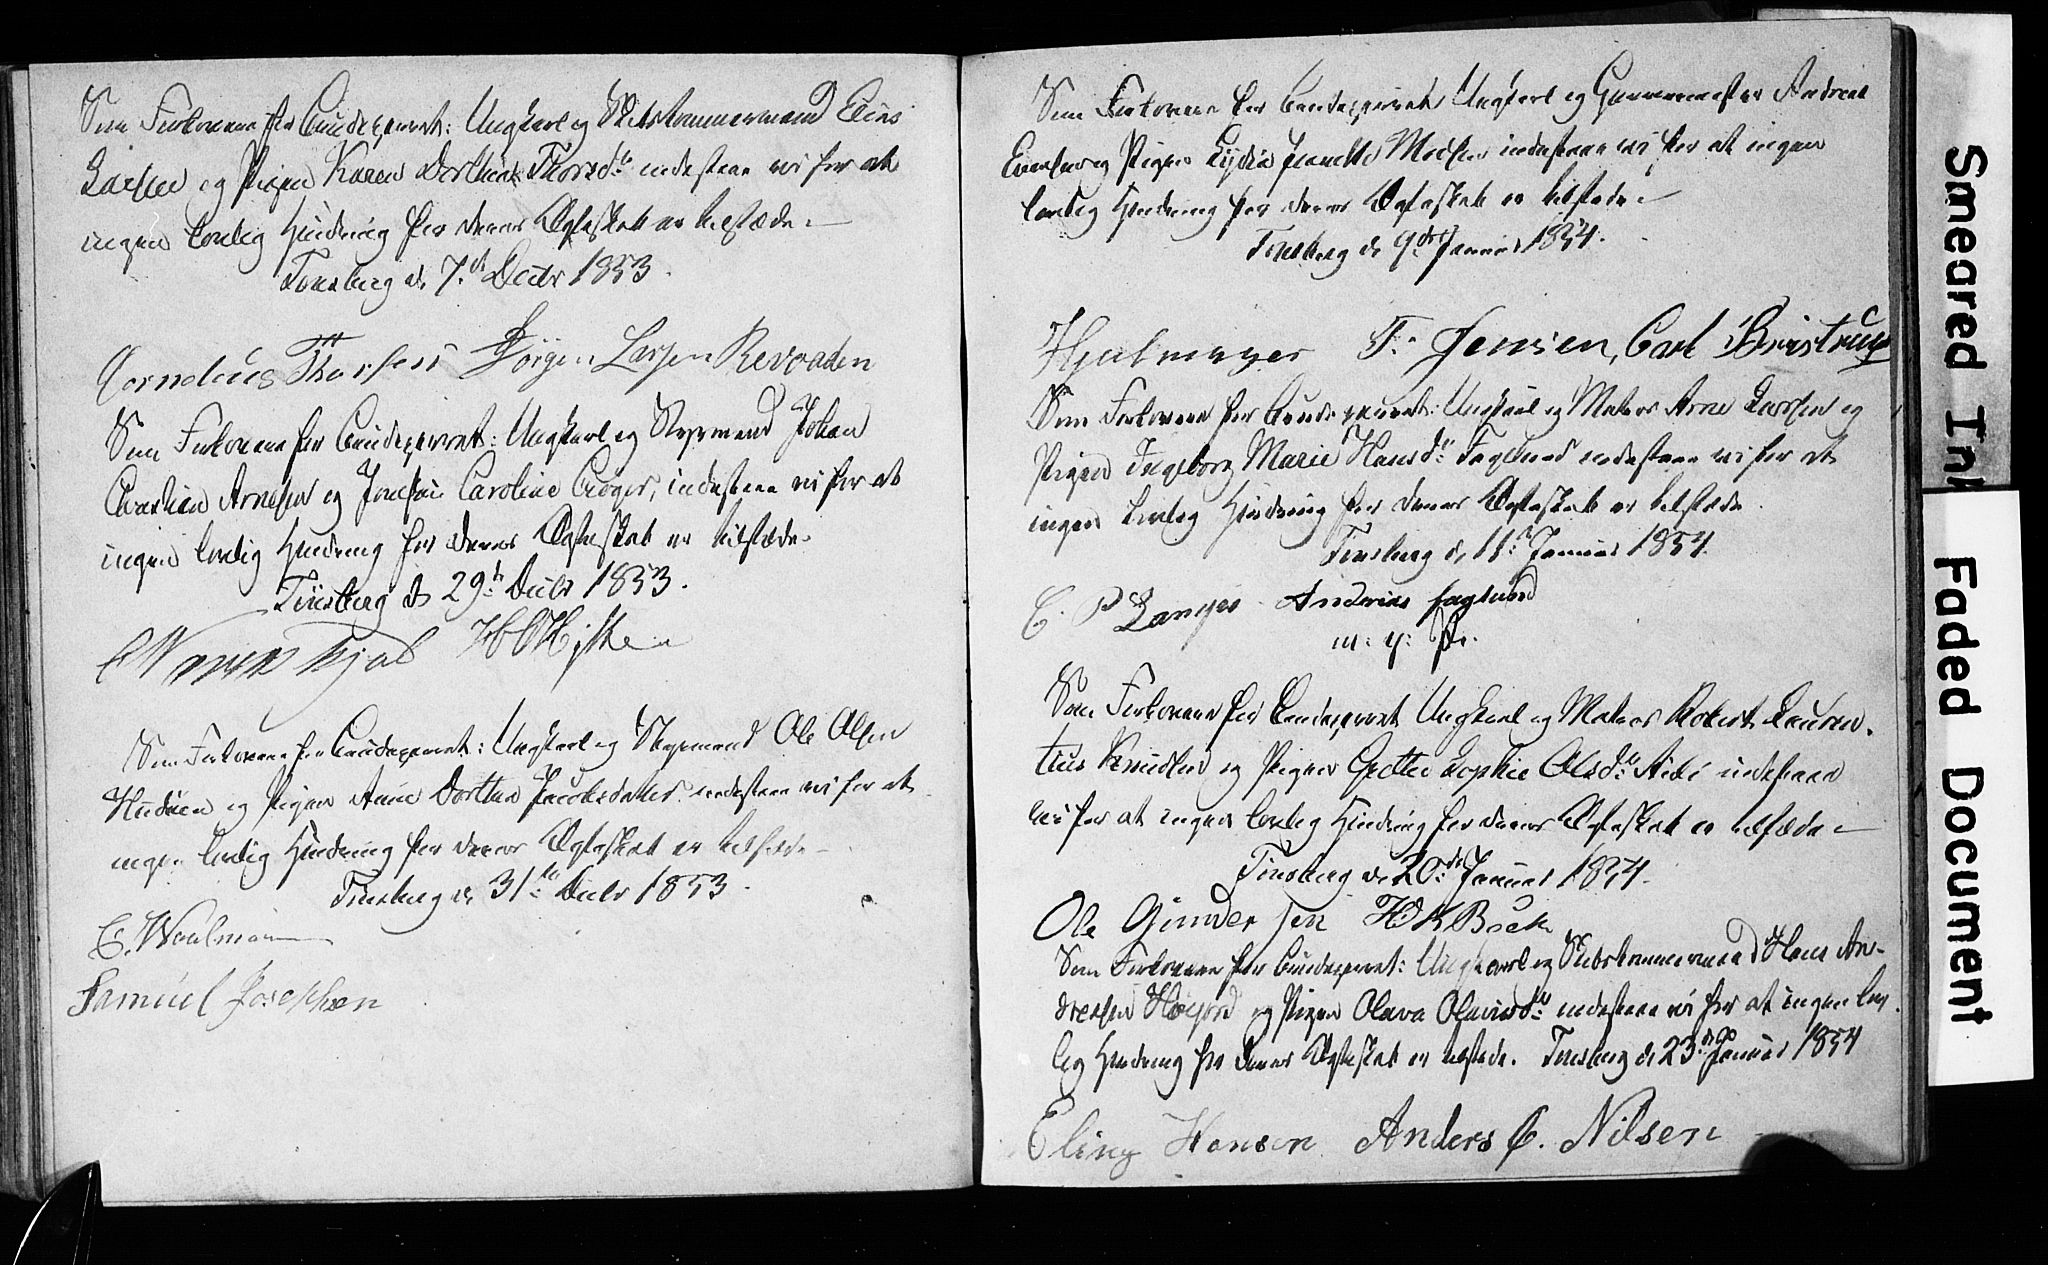 Som Forlovere for Brudeparret: Ungkarl og Skibstømmermand
Larsen og Pigen Karen Dorthea Thorsd: indestaae vi for at
ingen lovlig Hindring for deres Ægteskab er tilstæde.
Tønsberg d. 7de Decbr 1853.
Cornelius Thorsen Jørgen Larsen Revoaden
Som Forlovere for Brudeparret: Ungkarl og Styrmand Johan
Christian Arnesen og Jomfru Caroline Crøger, indestaae vi for at
ingen lovlig Hindring for deres Ægteskab er tilstæde.
Tønsberg d. 29de Decbr 1853.
Som Forlovere for Brudeparret: Ungkarl og Styrmand Ole Olsen
og Pigen Anne Dorthea Jacobsdatter indestaae vi for at
ingen lovlig Hindring for deres Ægteskab er tilstede
Tønsberg d. 31te Decbr 1853.
E. Woulmann
Samuel Josephsen
Som Forlovere for Brudeparret Ungkarl og Andreas
og Pigen Lydia Jeanette Madsen indestaae vi for at ingen
lovlig Hindring for deres Ægteskab er tilstede
Tønsberg d. 9de Januar 1854.
Hjalmeyer F. Jensen, Carl Bristrup
Som Forlovere for Brudeparret: Ungkarl og Matros Arne Larsen og
Pigen Ingeborg Marie Hansd: Faglund indestaae vi for at
ingen lovlig Hindring for deres Ægteskab er tilstede.
Tønsberg d. 11te Januar 1854.
C. P Langes Andreas faglund
m. f. P.
Som Forlovere for Brudeparret Ungkarl og Matros Robert Lauren-
tius Knudsen og Pigen Grethe Sophie Olsd: indestaae
vi for at ingen lovlig Hindring for deres Ægteskab er tilstæde
Tønsberg d. 20de Januar 1854.
Ole Gunder sen H K Bock
Som Forlovere for Brudeparret: Ungkarl og Skibstømmermand Hans An-
dresen Høijord og Pigen Olava indestaae vi for at ingen lov
lig Hindring for deres Ægteskab er tilstede. Tønsberg d. 23de Januar 1854
Eling Hansen Anders C. Nilsen
Smeared Ink
Faded Document